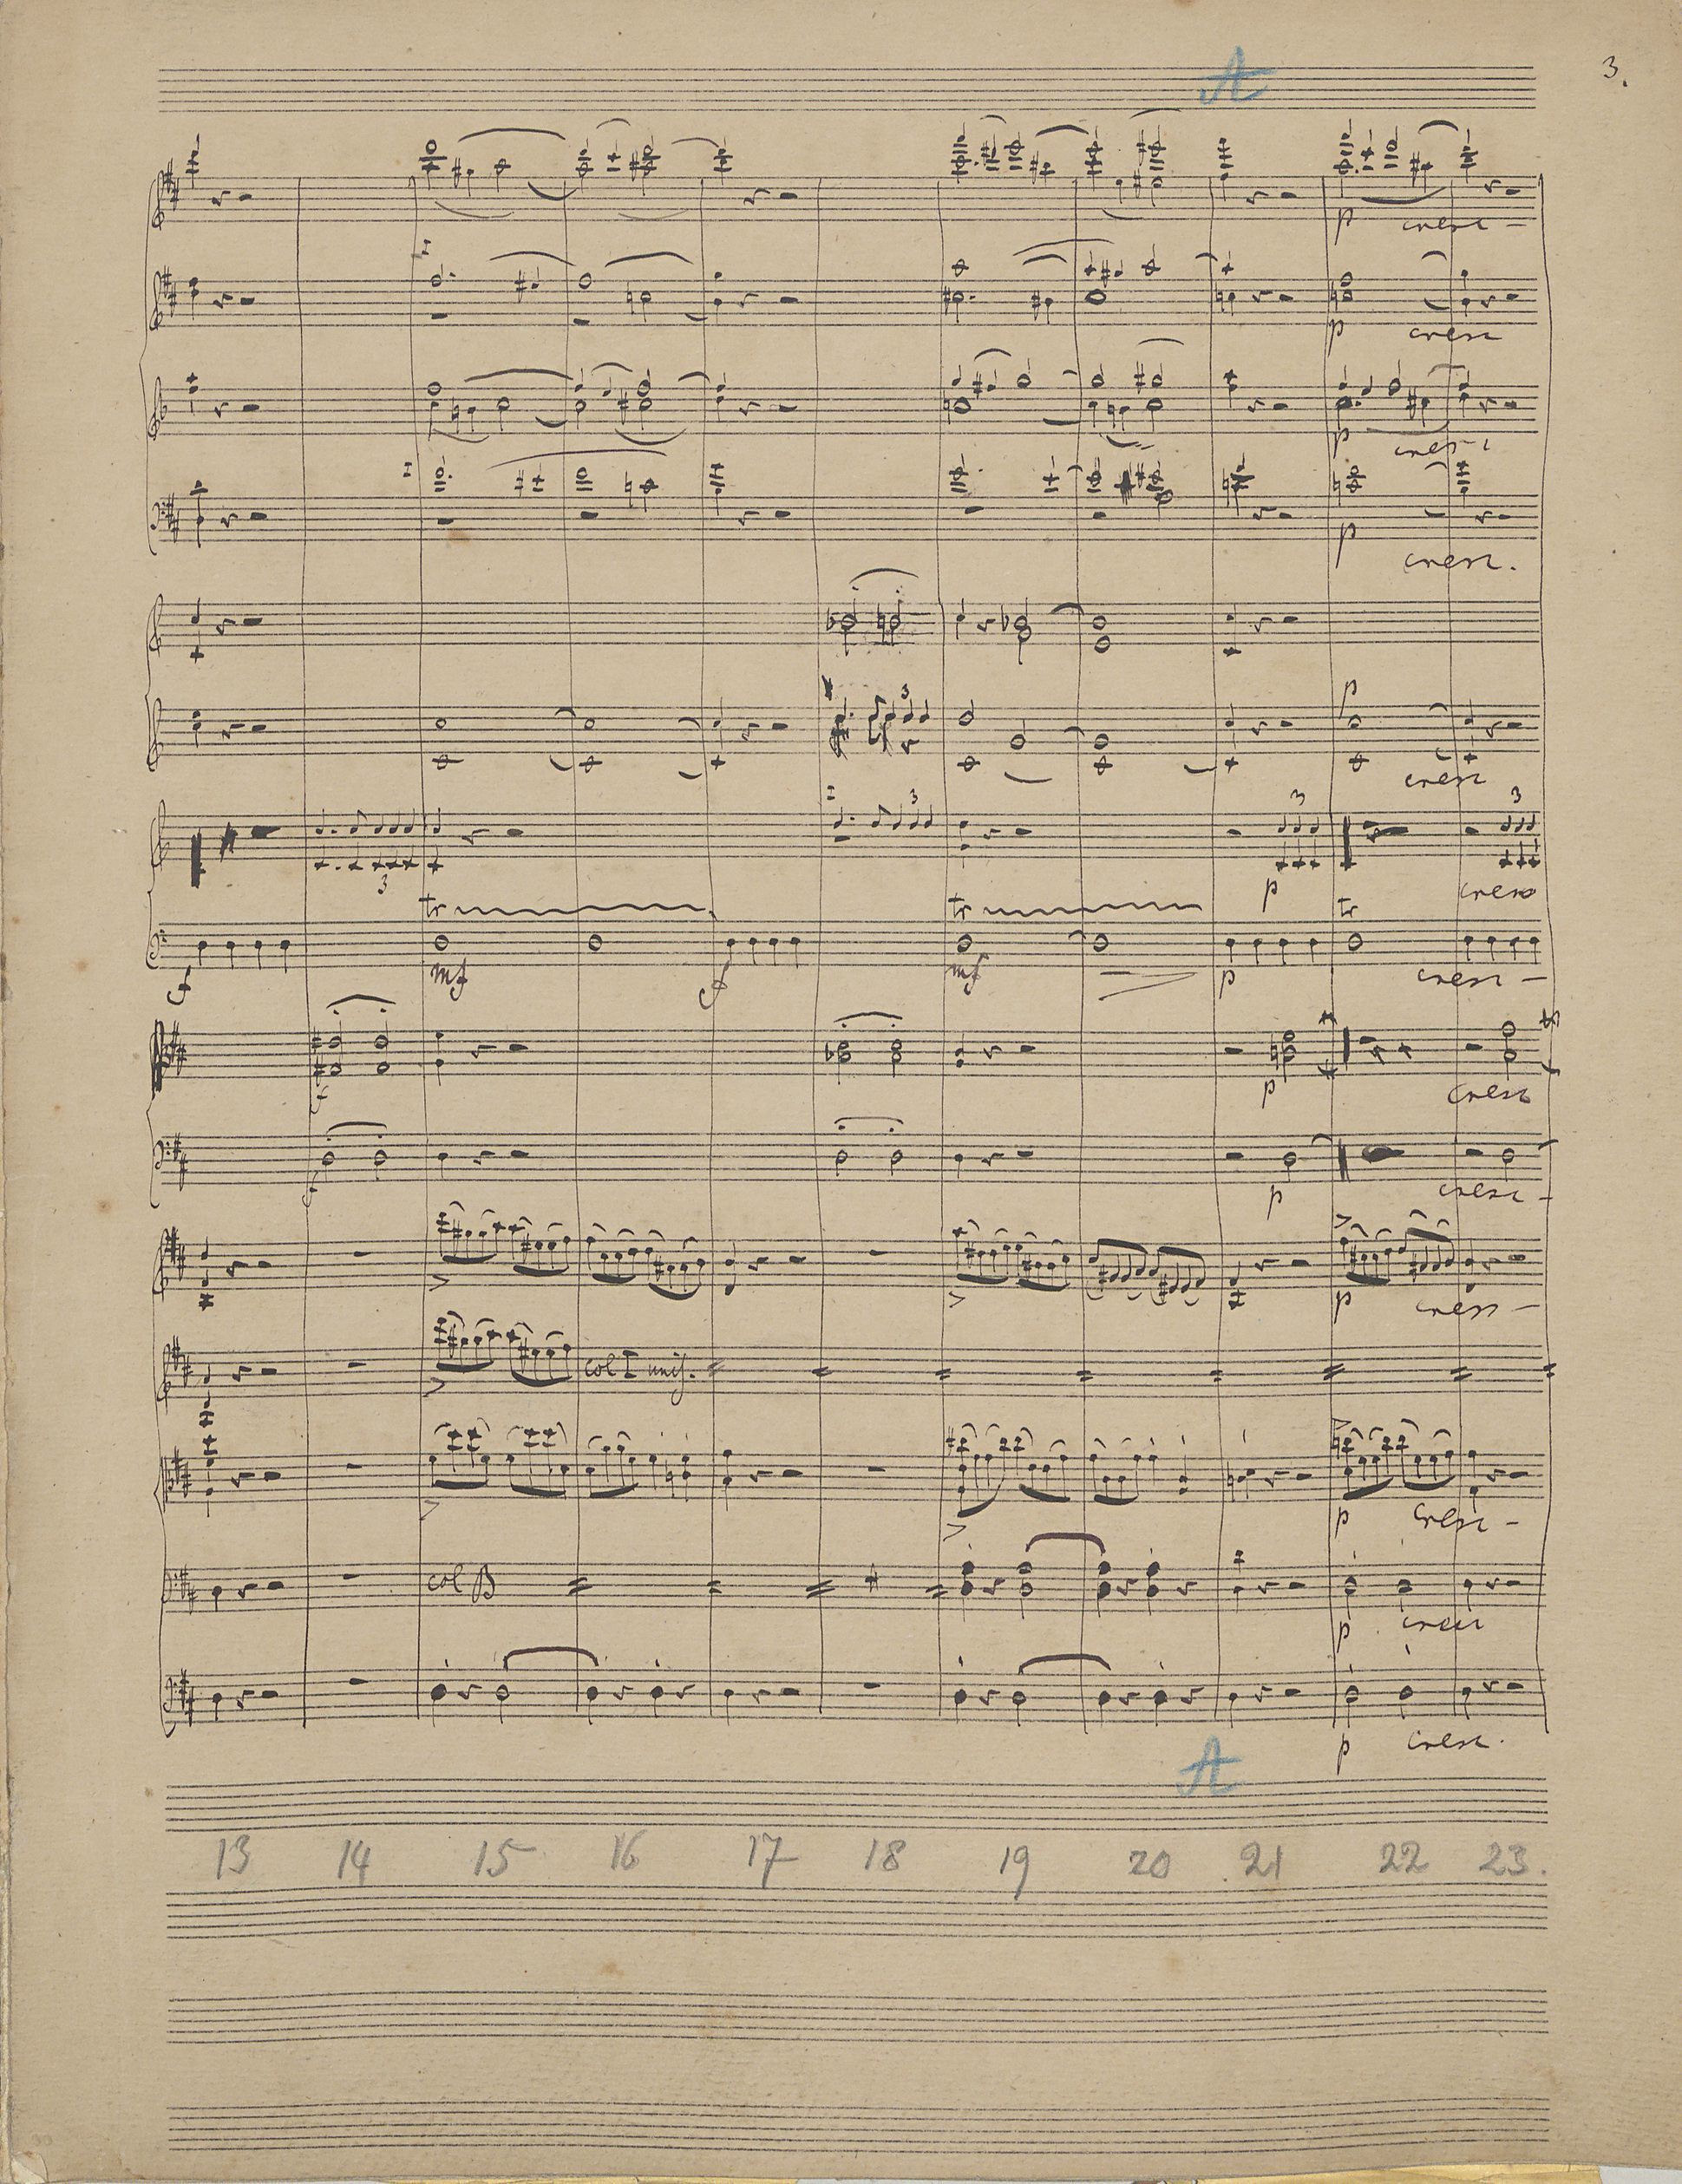 3.
A
p cresc -
I
p cresc
p cresc
I
p cresc.
3
p
cresc
I 3 3 3
3
p cresc
tr tr tr
f mf f mf p cresc -
f p cresc
f p cresc -
p cresc -
col I unis.
p cresc -
col B
2
p cresc
p cresc.
A
13 14 15 16 17 18 19 20 21 22 23.